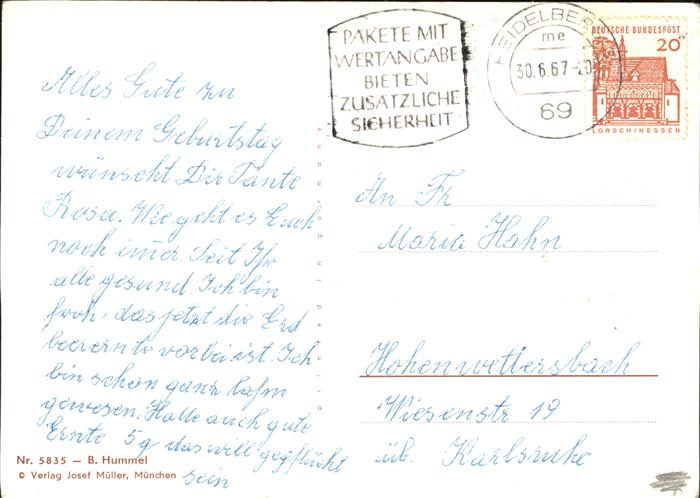 Alles Gute zu
Deinem Geburtstag
wünscht Dir Tante
Rosa. Wie geht es Euch
noch imer Seit Ihr
alle gesund. Ich bin
froh, das jetzt die Erd
beerernte vorbei ist. Ich
bin schon ganz lahm
gewesen. Hatte auch gute
Ernte 5 das will gepflückt
sein
Nr. 5835 — B. Hummel
© Verlag Josef Müller, München
printed in germany
PAKETE MIT
WERTANGABE
BIETEN
ZUSÄTZLICHE
SICHERHEIT
HEIDELBERG
me
30.6.67
69
DEUTSCHE BUNDESPOST
20
LORSCH/HESSEN
An Fr
Maria Hahn
Hohenwettersbach
Wiesenstr 19
üb. Karlsruhe